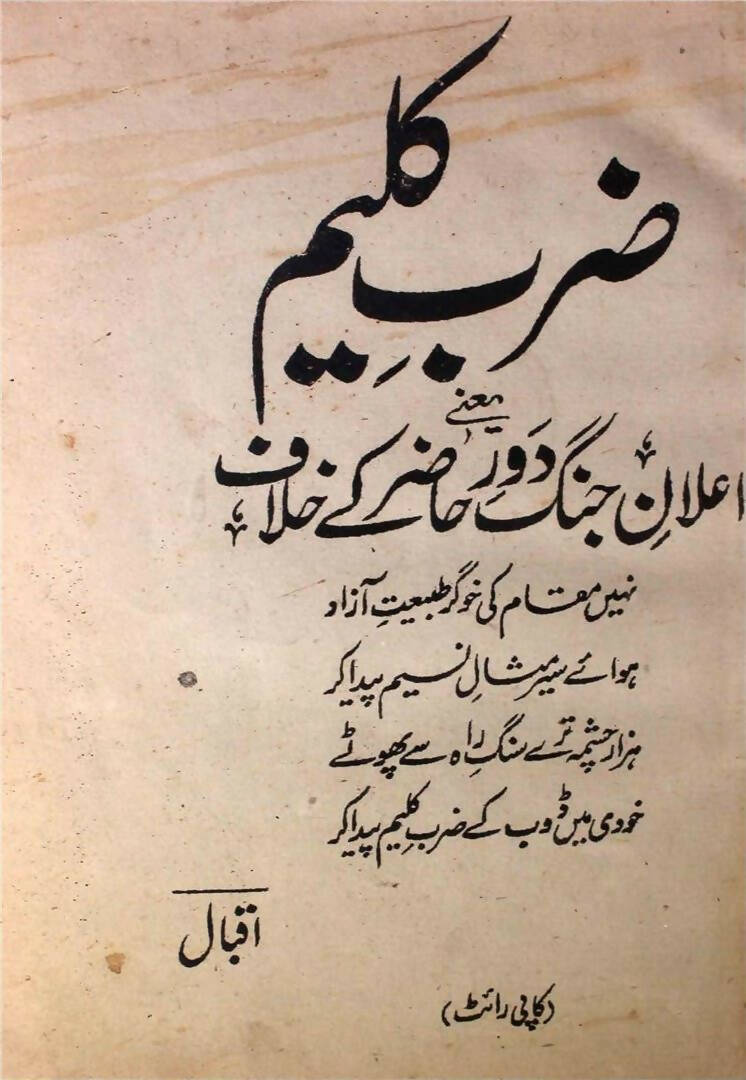 ضربِ کلیم
یعنے
اعلانِ جنگ دَورِ حاضر کے خلاف
نہیں مقام کی خوگر طبیعتِ آزاد
ہوائے سیر مثالِ نسیم پیدا کر
ہزار چشمہ ترے سنگِ راہ سے پھوٹے
خودی میں ڈوب کے ضربِ کلیم پیدا کر
اقبال
(کاپی رائٹ)